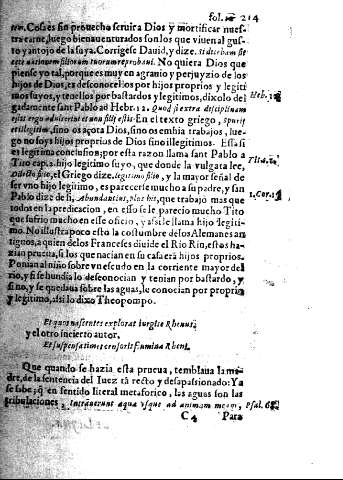 fol. 214
Cosa es sin prouecho seruira Dios y mortificar nues-
tra carne, luego bienauenturados son los que viuen al gus-
to y antojo de la suya. Corrigese Dauid, y dize. Si dicebam sic
ecce nationem filiorum tuorum reprobaui. No quiera Dios que
piense yo tal, porque es muy en agrauio y perjuyzio de los
hijos de Dios, es desconocerlos por hijos proprios y legiti
mos suyos, y tenellos por bastardos y legitimos, dixolo del
gadamente sant Pablo ad Hebr. 12. Quod si extra disciplinam
estis ergo adulteri et non filij estis. En el texto griego, spurij
et illegitimi, sino os açota Dios, sino os embia trabajos, lue-
go no soys hijos proprios de Dios sino illegitimos. Essa si
es legitima conclusion; por esta razon llama sant Pablo a
Tito cap. 1. hijo legitimo suyo, que donde la vulgata lee,
Dilecto filio, el Griego dize, legitimo filio, y la mayor señal de
ser vno hijo legitimo, es parecerse mucho a su padre, y san
Pablo dize de si, Abundantius, que trabajò mas que
todos en la predicacion, en esso se le parecio mucho Tito
que sufrio mucho en esse oficio, y assi le llama hijo legiti-
mo. No illustra poco esto la costumbre de los Alemanes an
tiguos, a quien de los Franceses diuide el Rio Rin, estos ha-
zian prueua, si los que nacian en su casa erã hijos proprios.
Ponian al niño sobre vn escudo en la corriente mayor del
rio, y si se hundia lo desconocian y tenian por bastardo, y
si no, y se quedaua sobre las aguas, le conocian por proprio
y legitimo, assi lo dixo Theopompo.
Et quos nascentes explorat gurgite Rhenus,
y el otro incierto autor,
Et suspensatione censorit flumina Rheni.
Que quando se hazia esta prueua, temblaua la ma-
dre, de la sentencia del Iuez tã recto y desapassionado: Ya
se sabe, q̃ en sentido literal metaforico, las aguas son las
tribulaciones, Intrauerunt aquæ vsque ad animam meam,
C 4 Para
Hebr. 12
Tito. 1.
1. Cor. 15
Psal. 68.